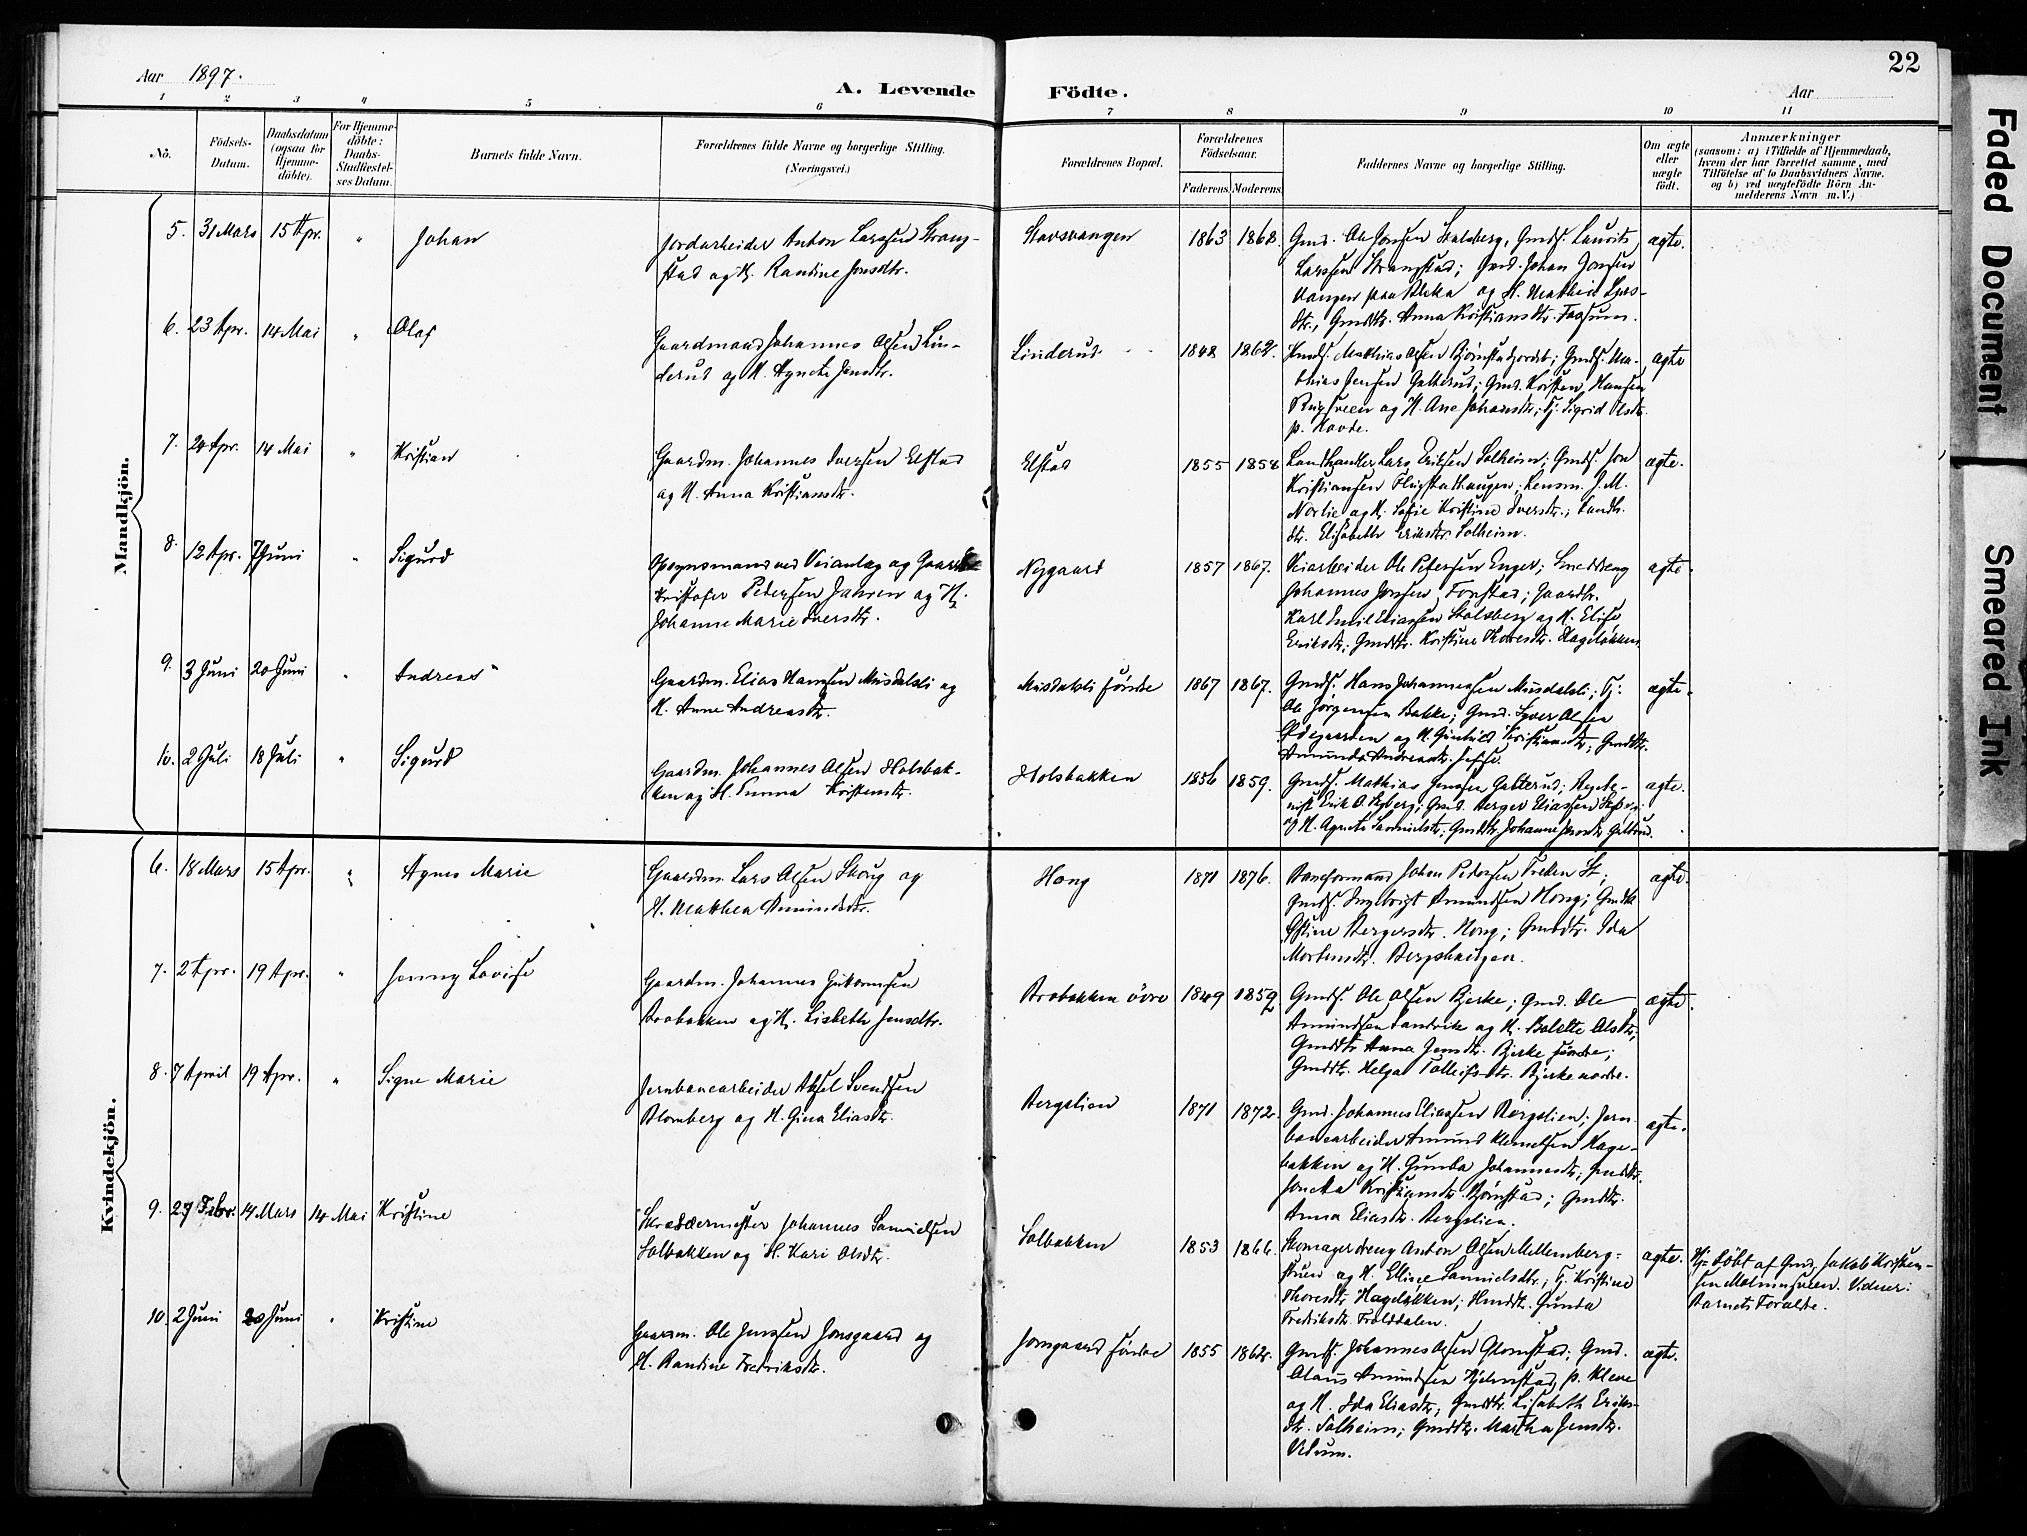 22
Aar 1897.
A. Levende Födte.
Aar
1 2 3 4 5 6 7 8 9 10 11
No.
Födsels-Datum.
Daabsdatum (ogsaa for Hjemme-döbte).
For Hjemme-döbte: Daabs-Stadfæstel-ses Datum.
Barnets fulde Navn.
Forældrenes fulde Navne og borgerlige Stilling.
(Næringsvei.)
Forældrenes Bopæl.
Forældrenes Födselsaar.
Faderens. Moderens.
Faddernes Navne og borgerlige Stilling.
Om ægte eller uægte födt.
Anmærkninger
(saasom: a) i Tilfælde af Hjemmedaab,
hvem der har forrettet samme, med
Tilföielse af to Daabsvidners Navne.
og b) ved uægtefödte Börn An-
melderens Navn m. V.)
Mandkjön.
5. 31 Mars 15 Apr. " Johan
Jordarbeider Anton Larssen Strang-
stad og H. Randine Jensdtr.
Stavsvangen 1863 1862.
Gmd. Ole Jonsen Stalsberg, Gmds. Laurits
Larssen Strangstad; Gmd. Johan Jonsen
Vangen paa og H. Mathea Lars-
dtr., Gmddtr. Anna Kristiansdtr. Fossum.
ægte.
6. 23 Apr. 14 Mai " Olaf
Gaardmand Johannes Olsen Lin-
derud og H. Agnete Jensdtr.
Linderud 1848 1862.
Gmds. Mathias Olsen; Gmds. Ma-
thias Jensen Galterud; Gmd. Kristen Hansen
Rugsveen og H. Ane Johansdtr; Tj. Sigrid Olsdtr.
p. Hovde.
ægte
7. 24 Apr. 14 Mai " Kristian
Gaardm. Johannes Iversen Elstad
og H. Anna Kristiansdtr.
Elstad 1855 1858
Landhandler Lars Eriksen Solheim; Gmds. Jon
Kristiansen Flugstadhaugen; Lensm. J. M.
Norlie og H. Sofie Kristine Iversdtr.; Landh.
dtr. Elisabeth Eriksdtr. Solheim.
ægte.
8. 12 Apr. 7 Juni " Sigurd
Opsynsmand ved Veianlæg og Gaardbr.
Kristofer Pedersen Jahren og H.
Johanne Marie Iversdtr.
Nygaard 1857 1867.
Veiarbeider Ole Petersen Enger; Smeddreng
Johannes Jonsen Fonstad; Gaardbr.
Karl Emil Eliassen Stalsberg og H. Elise
Eriksdtr; Gmddtr. Kristine Thoresdtr. Hageløkken
ægte.
9. 3 Juni 20 Juni " Andreas
Gaardm. Elias Hansen Musdalsli og
H. Anne Andreasdtr.
Musdalsli søndre 1867 1867.
Gmds. Hans Johannessen Musdalsli; Tj.
Ole Jørgensen Bakke; Gmd. Syver Olsen
Ødegaarden og H. Gunhild Kristiansdtr; Gmddtr.
Amunda Andreasdtr.
ægte.
10. 2 Juli 18 Juli " Sigurd
Gaardm. Johannes Olsen Holsbak-
ken og H. Kristensdtr.
Holsbakken 1856 1859.
Gmds. Mathias Jensen Galterud;
Erik O. Nyberg; Gmd. Berger Eliassen
og H. Agnete Samuelsdtr; Gmddtr. Johanne Jensdtr
ægte.
Kvindekjön.
6. 18 Mars 15 Apr. " Agnes Marie
Gaardm. Lars Olsen Skoug og
H. Mathea Amundsdtr.
Hong 1871 1876.
Baneformand Johan Pedersen Tretten St;
Gmds. Ingebrigt Amundsen Hong; Gmddtr.
Bergersdtr. Hong; Gmddtr. Ida
Mortensdtr. Bergshaugen.
ægte.
7. 2 Apr. 19 Apr. " Jenny Lovise
Gaardm. Johannes Gutormsen
Brobakken og H. Lisbeth Jensdtr.
Brobakken øvre 1849 1859
Gmds. Ole Olsen Bjerke; Gmd. Ole
Amundsen Sandvike og H. Bolette Olsdtr;
Gmddtr. Anna Jensdtr. Bjerke søndre;
Gmddtr. Helga Tollefsdtr. Bjerke nordre.
ægte.
8. 7 April 19 Apr. " Signe Marie
Jernbanearbeider Aksel Svendsen
Blomberg og H. Gina Eliasdtr.
Bergslien 1871 1872.
Gmd. Johannes Eliassen Bergslien; Jern-
banearbeider Amund Klemetsen Hage-
bakken og H. Gunda Johannesdtr; Gmddtr.
Kristiansdtr. Bjørnstad; Gmddtr.
Anna Eliasdtr. Bergslien.
ægte.
9. 27 Febr. 14 Mars 14 Mai Kristine
Skræddermester Johannes Samuelsen
Solbakken og H. Kari Olsdtr.
Solbakken 1853 1866.
Skomagerdreng Anton Olsen Mellemberg-
stuen og H. Elline Samuelsdtr.; Tj. Kristine
Thoresdtr. Hageløkken; Gmddtr. Gunda
Fredriksdtr. Trolddalen.
ægte.
Hj= döbt af Gmd. Jakob Kristen-
sen Malminsveen. Vidner:
Barnets Forældre.
10. 2 Juni 20 Juni " Kristine
Gaardm. Ole Jenssen Jonsgaard og
H. Randine Fredriksdtr.
Jonsgaard søndre 1855 1862.
Gmds. Johannes Olsen Glomstad; Gmd.
Olaus Amundsen Hjelmstad p. Kleve
og H. Ida Eliasdtr; Gmddtr. Lisabeth Eriks-
dtr. Solheim; Gmddtr. Martha Jensdtr.
Ulvum.
ægte.
Faded Document
Smeared Ink